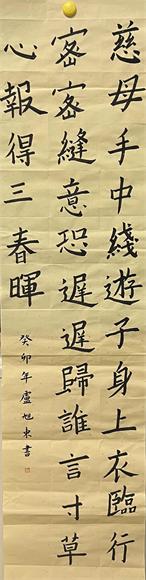 慈母手中綫遊子身上衣臨行
密密縫意恐遲遲歸誰言寸草
心報得三春暉
癸卯年盧旭東書